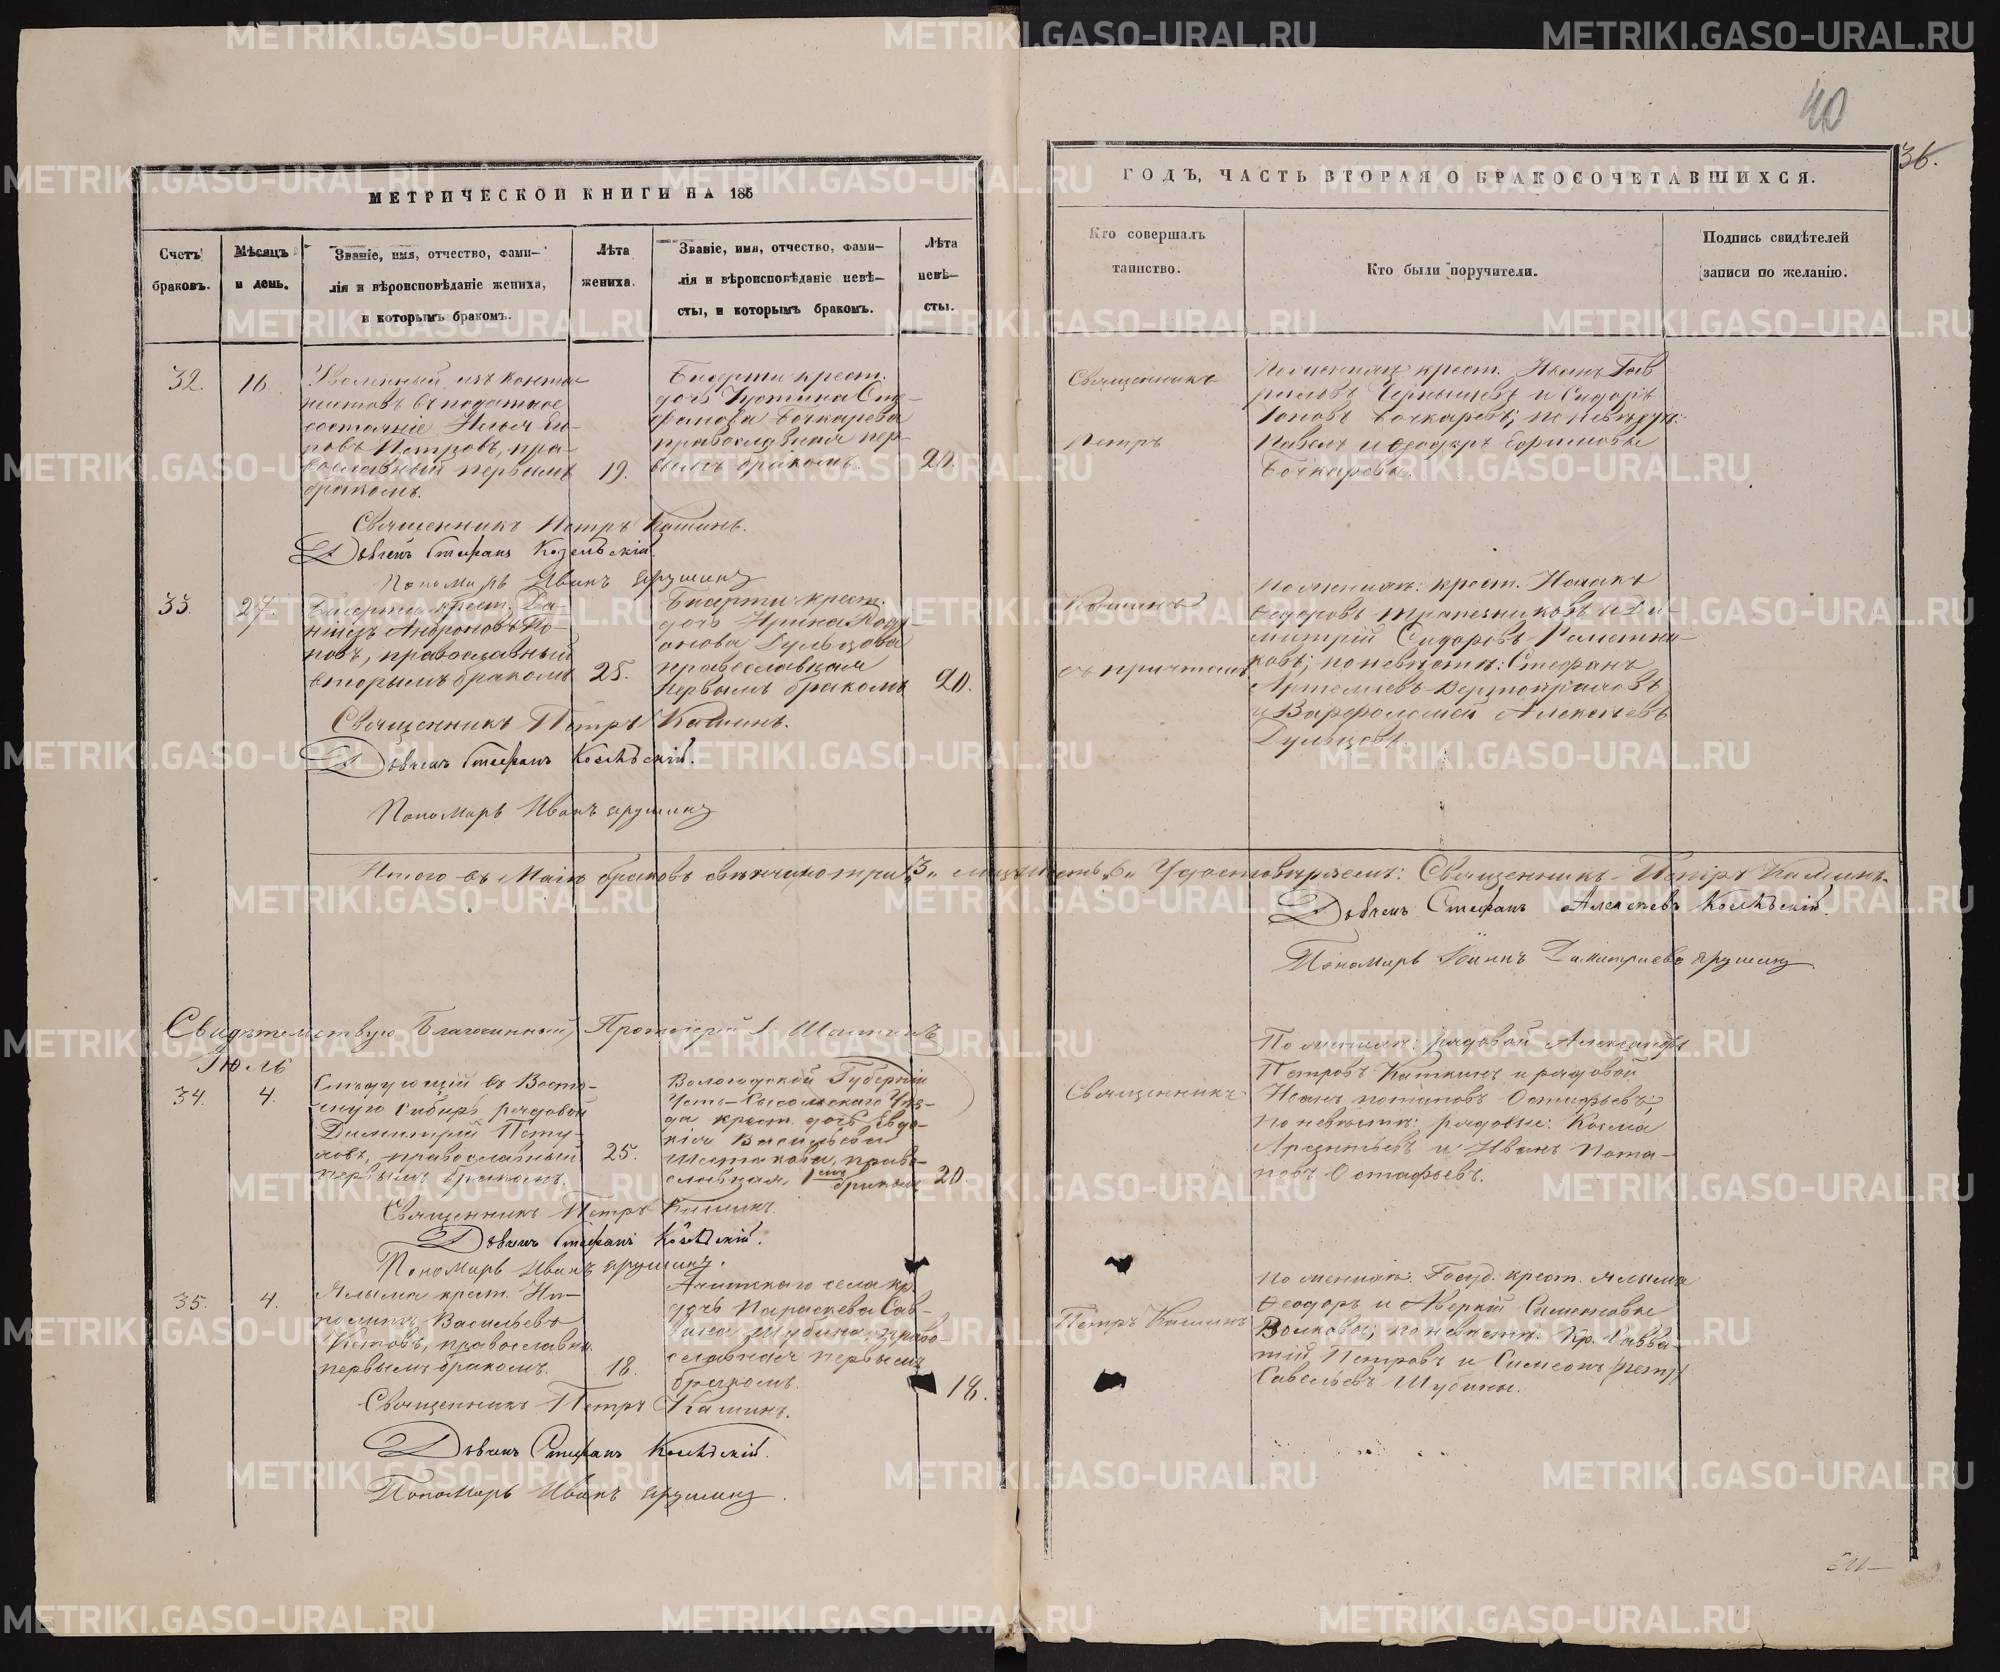 40
36.
МЕТРИЧЕСКОЙ КНИГИ НА 185
ГОДЪ, ЧАСТЬ ВТОРАЯ О БРАКОСОЧЕТАВШИХСЯ.
Счетъ браковъ.
Мѣсяцъ и день.
Званіе, имя, отчество, фами-
лія и вѣроисповѣданіе жениха,
и которымъ бракомъ.
Лѣта
жениха.
Званіе, имя, отчество, фами-
лія и вѣроисповѣданіе невѣ-
сты, и которымъ бракомъ.
Лѣта
невѣ-
сты.
Кто совершалъ
таинство.
Кто были поручители.
Подпись свидѣтелей
записи по желанію.
32.
16
Уволенный изъ
въ податное
состояніе Илья
повъ Петровъ, пра-
вославный первымъ
бракомъ.
19.
Бисерти крест.
дочь Устина Сте-
фанова Бочкарева
православная пер-
вымъ бракомъ.
20.
Священникъ
Петръ
По женихѣ крест. Иванъ Гав
риловъ Чернышевъ и Сидоръ
Іоновъ Бочкаревъ; по невѣстѣ:
Павелъ и Ѳеодоръ Ефимовы
Бочкаревы.
Священникъ Петръ Кашинъ.
Дьячекъ Стефанъ Козельскій
Пономарь Иванъ Ярушинъ
33.
27.
Бисерти крест. Да-
ніилъ Андроновъ По-
повъ, православный
вторымъ бракомъ
25.
Бисерти крест.
дочь Ирина Роди-
онова Дульцова
православная
первымъ бракомъ
20.
Кашинъ
съ причтомъ
По женихѣ: крест. Исаакъ
Ѳедоровъ Трапезниковъ и Ди-
митрій Сидоровъ
ковъ; по невѣстѣ: Стефанъ
Артемьевъ
и Варфоломей Алексѣевъ
Дульцовъ.
Священникъ Петръ Кашинъ.
Дьячекъ Стефанъ Козельскій.
Пономарь Иванъ Ярушинъ
Итого въ Маіѣ браковъ вѣнчано три „3„ Удостовѣряемъ: Священникъ Петръ Кашинъ.
Дьячекъ Стефанъ Алексѣевъ Козельскій.
Пономарь Іоаннъ Димитріевъ Ярушинъ
Свидѣтельствую Благочинный, Протоіерей
Іюль
34.
4.
Слѣдующій въ Восто-
чную Сибирь рядовой
Димитрій Пету-
ховъ, православный
первымъ бракомъ.
25.
Вологодской Губерніи
Усть-Сысольскаго Уѣз-
да крест. дочь Евдо-
кія Васильева
Шестакова, право-
славная, 1ымъ
бракомъ
20.
Священникъ
По женихѣ: рядовой Александръ
Петровъ Каткинъ и рядовой
Иванъ Потаповъ Остафьевъ;
по невѣстѣ: рядовые: Косма
Арсентьевъ и Иванъ Пота-
повъ Остафьевъ.
Священникъ Петръ Кашинъ.
Дьячекъ Стефанъ Козельскій.
Пономарь Иванъ Ярушинъ.
35.
4.
Ялыма крест. Ип-
политъ Васильевъ
Кетовъ, православн.
первымъ бракомъ.
18.
Ачитскаго села кр.
дочь Параскева Сав-
вина Шубина, право-
славная первымъ
бракомъ.
18.
Петръ Кашинъ
По женихѣ: Госуд. крест. Ялыма
Ѳеодоръ и Аверкій Симеоновы
Волковы; по невѣстѣ: Кр. Савва-
тій Петровъ и Симеонъ
Савельевъ Шубины.
Священникъ Петръ Кашинъ.
Дьячекъ Стефанъ Козельскій.
Пономарь Иванъ Ярушинъ.
METRIKI.GASO-URAL.RU